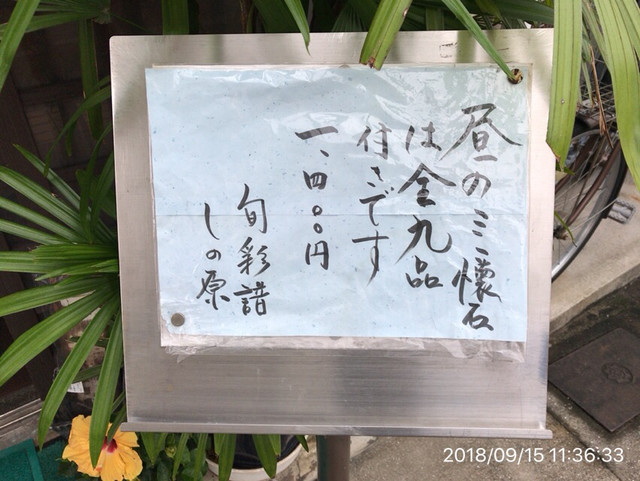 昼のミニ懐石
は全九品
付きです
一、四〇〇円
旬彩譜
しの原
2018/09/15 11:36:33